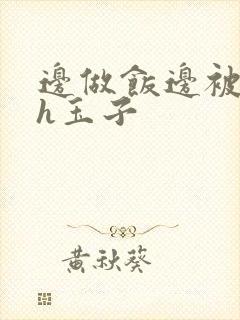 邊做飯邊被
h玉子
黃秋葵